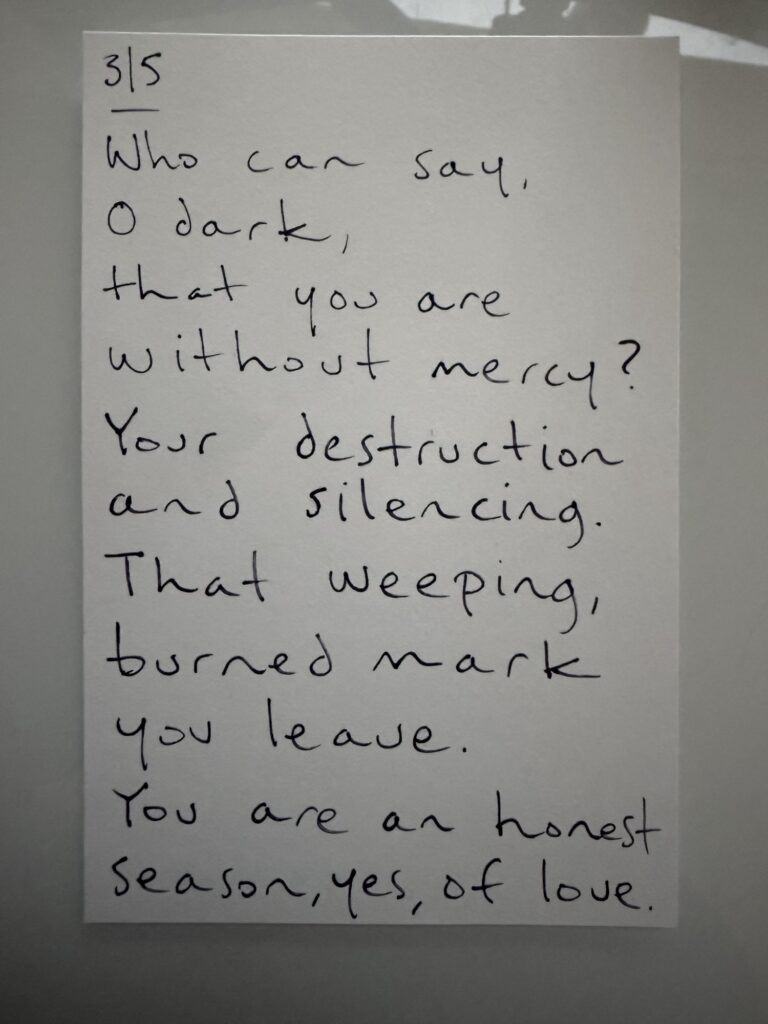 3/5
Who can say,
O dark,
that you are
without mercy?
Your destruction
and silencing.
That weeping,
burned mark
you leave.
You are an honest
season, yes, of love.